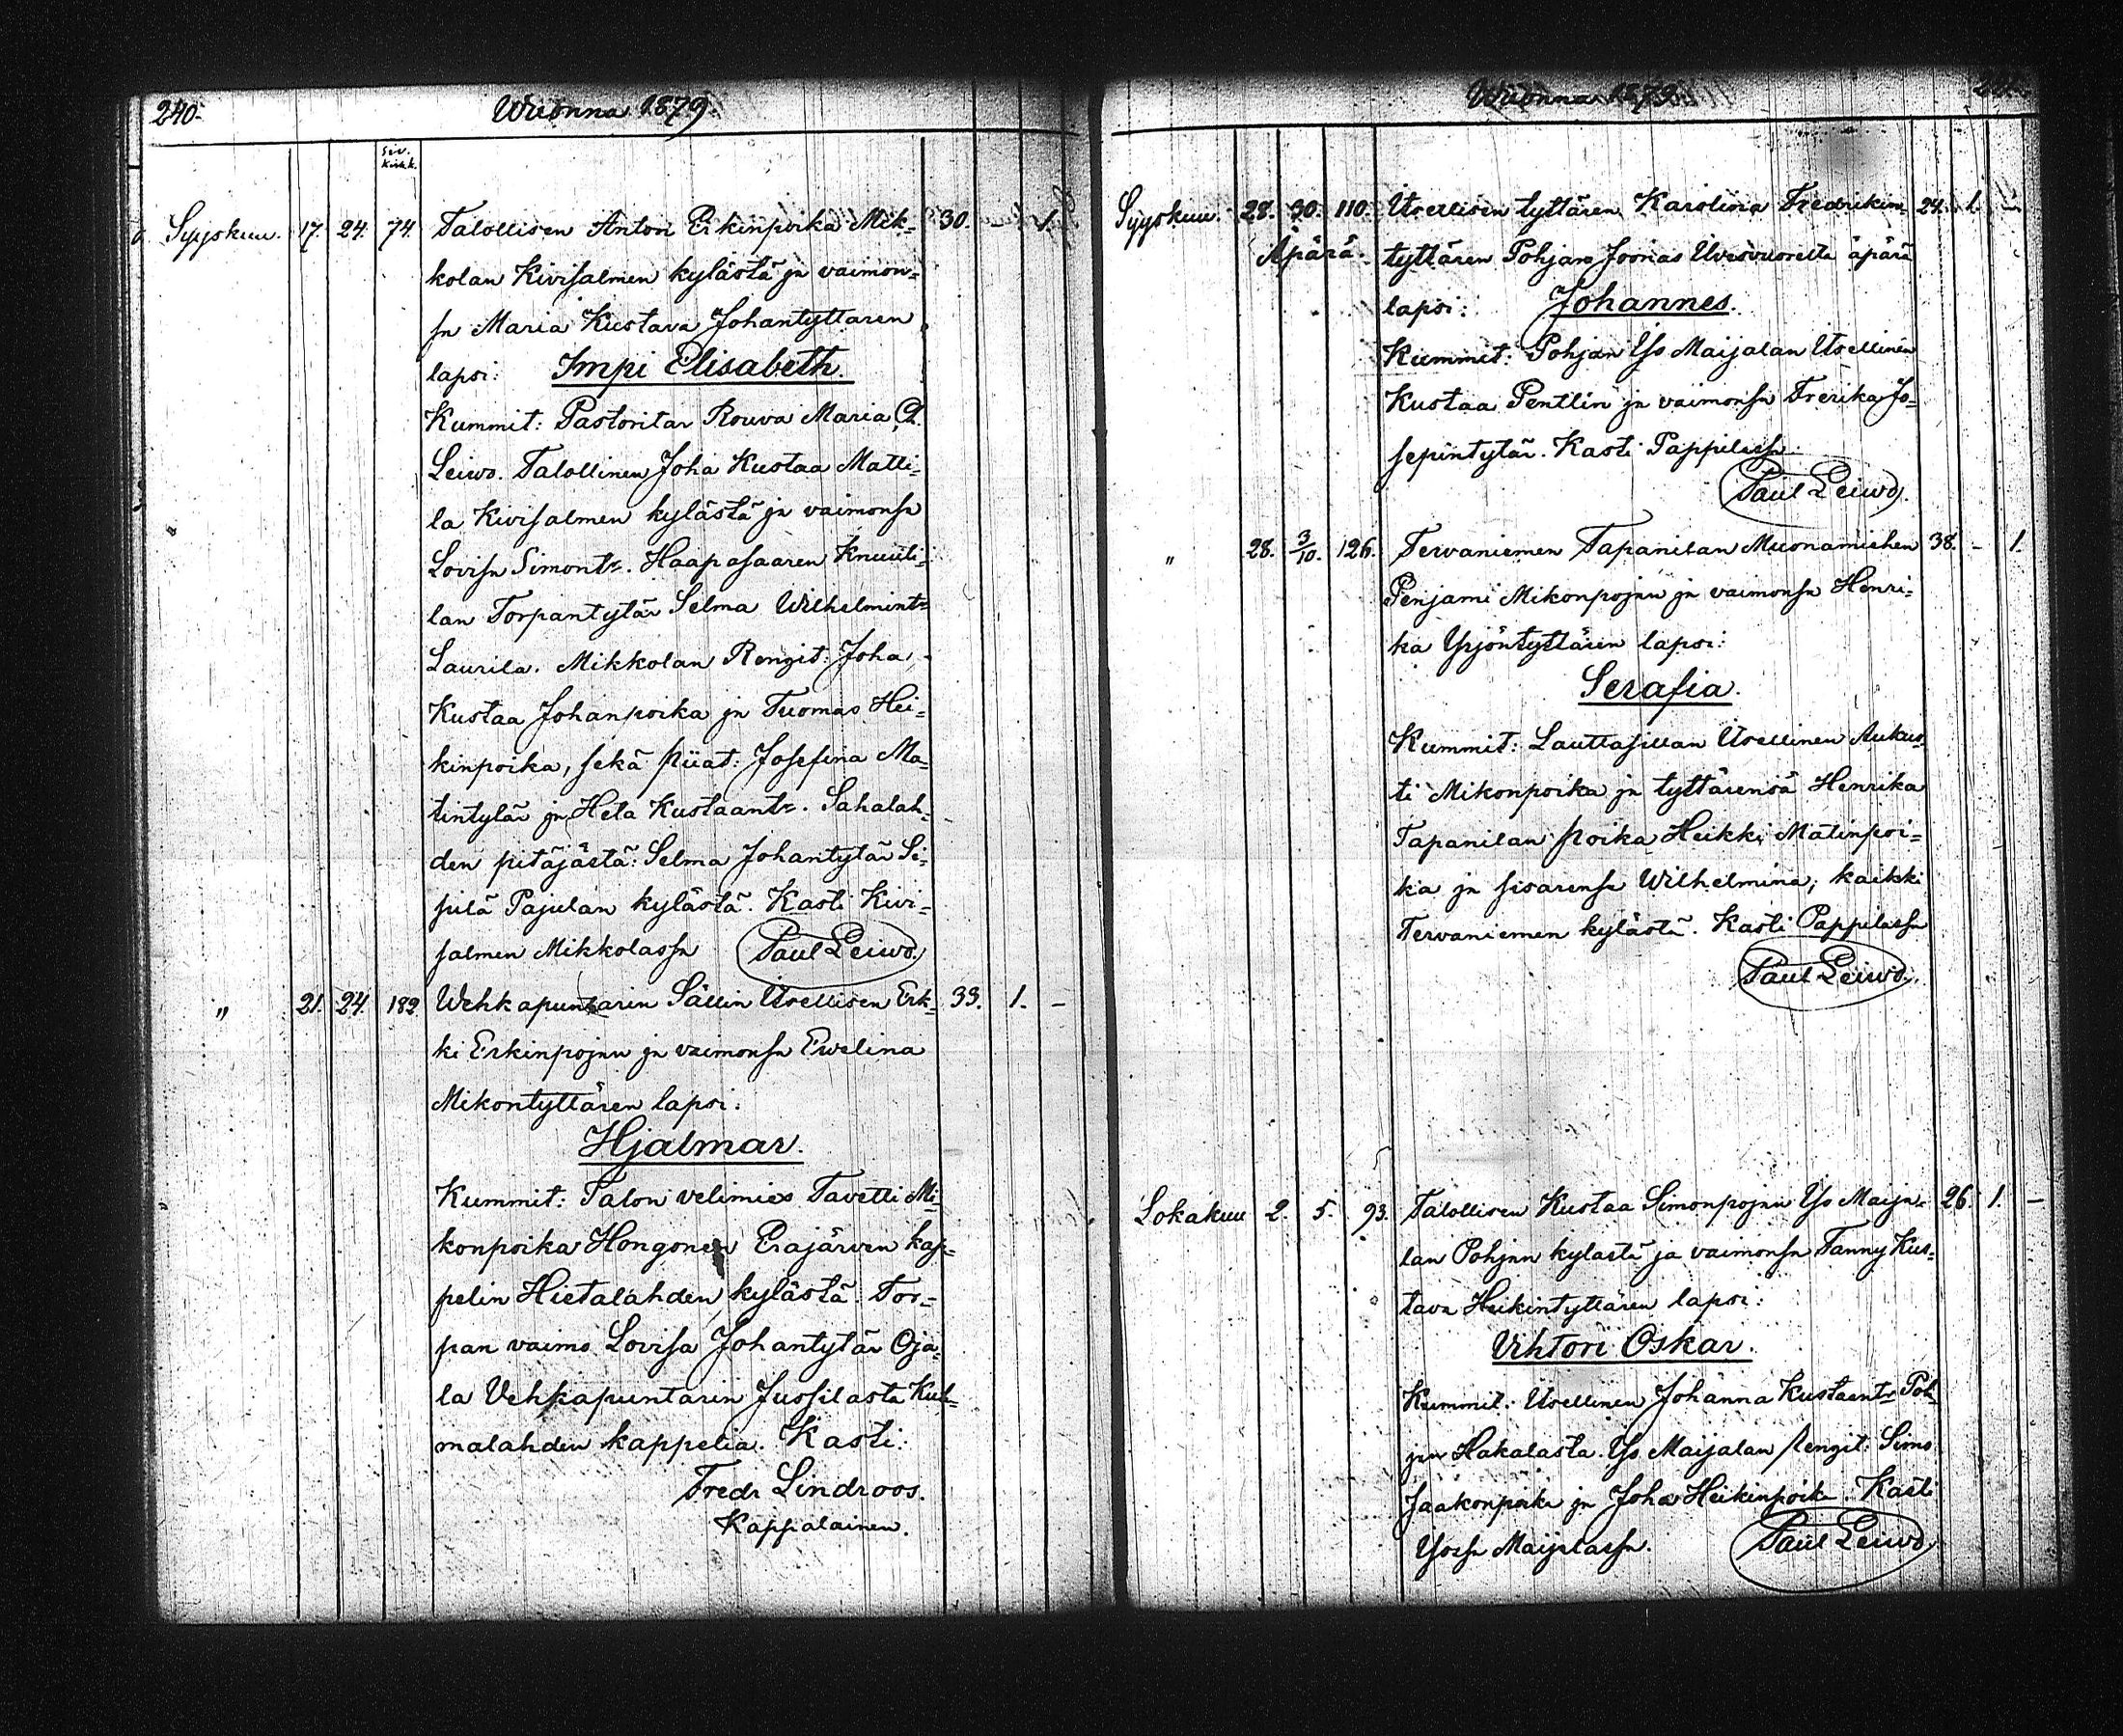 240.
Wuonna 1879.
Siv.
Kirkk.
Syyskuu. 17. 24. 74. Talollisen Anton Erkinpoika Mik= 30. - 1.
kolan Kivisalmen kylästä ja vaimon=
sa Maria Kustava Johantyttaren
lapsi: Impi Elisabeth.
Kummit: Pastoritar Rouva Maria Ch.
Leiwo. Talollinen Joha Kustaa Matti=
la Kivisalmen kylästä ja vaimonsa
Lovisa Simontr. Haapasaaren Knuuti=
lan Torpantytär Selma Wilhelmintr
Laurila. Mikkolan Rengit: Joha
Kustaa Johanpoika ja Tuomas Hei=
kinpoika, sekä piiat: Josefina Ma=
tintytär ja Heta Kustaantr. Sahalah=
den pitäjästä: Selma Johantytär Si=
pilä Pajulan kylästä. Kasti Kivi=
salmen Mikkolassa Paul Leiwo.
" 21. 24. 182. Wehkapuntarin Sällin Itsellisen Erk= 33. 1. -
ki Erkinpojan ja vaimonsa Ewelina
Mikontyttären lapsi:
Hjalmar.
Kummit: Talon velimies Tavetti Mi=
konpoika Hongonen Erajärven kap=
pelin Hietalahden kylästä. Tor=
pan vaimo Lovisa Johantytär Oja=
la Vehkapuntarin Jussilasta Kuh=
malahden kappelia. Kasti:
Fredr Lindroos.
Kappalainen.
Wuonna 1879.
Syyskuu. 28. 30. 110. Itsellisen tyttären Karolina Fredrikin= 24. 1. -
Äpärä. tyttären Pohjan Joonas Uvesvuorelta äpärä
lapsi: Johannes.
Kummit: Pohjan Yso Maijalan Itsellinen
Kustaa Penttin ja vaimonsa Frerika Jo=
sepintytär. Kasti Pappilassa.
Paul Leiwo.
" 28. 3/10. 126. Tervaniemen Tapanilan Muonamiehen 38. - 1.
Penjami Mikonpojan ja vaimonsa Henri=
ka Yrjöntyttären lapsi:
Serafia.
Kummit: Lauttasillan Itsellinen Aukus=
ti Mikonpoika ja tyttärensä Henrika
Tapanilan poika Heikki Matinpoi=
ka ja sisarensa Wilhelmina, kaikki
Tervaniemen kylästä. Kasti Pappilassa
Paul Leiwo.
Lokakuu 2. 5. 93. Talollisen Kustaa Simonpojan Yso Maija= 26. 1. -
lan Pohjan kylästä ja vaimonsa Fanny Kus=
tava Heikintyttären lapsi:
Vihtori Oskar.
Kummit: Itsellinen Johanna Kustaantr Poh=
jan Hakalasta. Yso Maijalan rengit: Simo
Jaakonpoika ja Joha Heikinpoika. Kasti
Yossa Maijalassa. Paul Leiwo